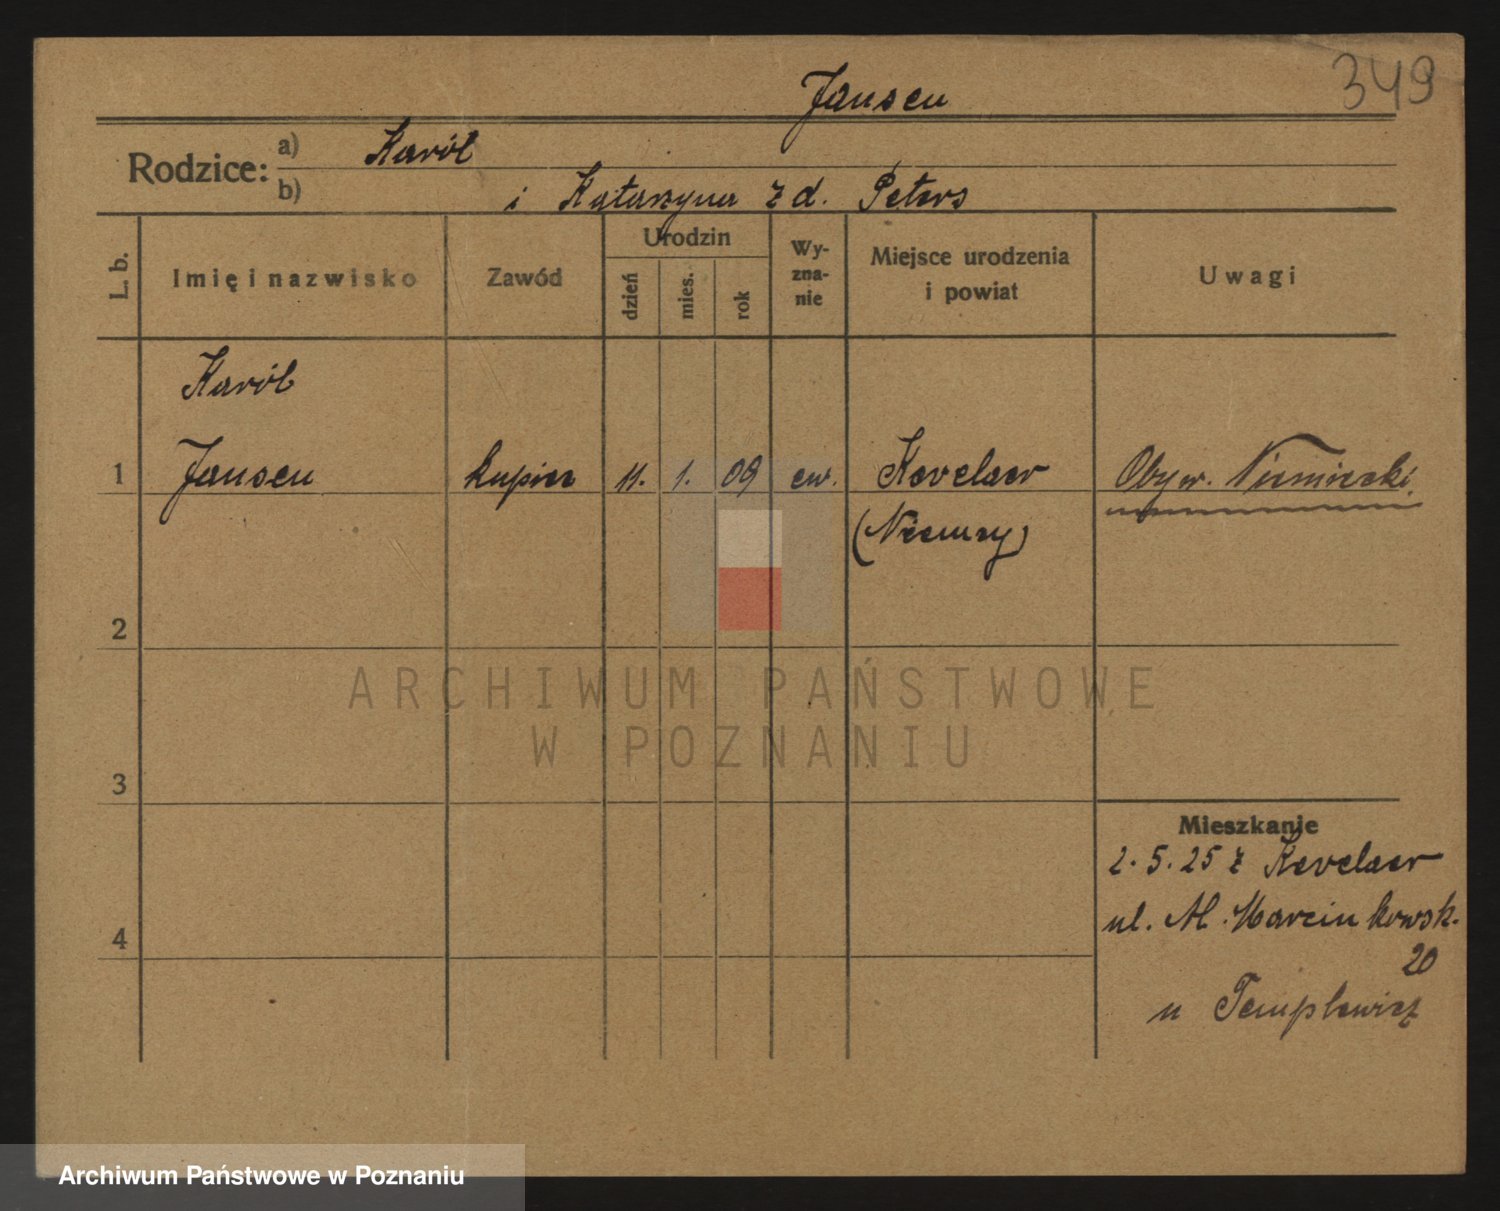 349
Jansen
Rodzice: a) Karól
b) i Katarzyna z d. Peters
L. b.
Imię i nazwisko
Zawód
Urodzin
dzień
mies.
rok
Wy-
zna-
nie
Miejsce urodzenia
i powiat
Uwagi
Karól
1 Jansen kupiec 11. 1. 09 ew. Kevelaer Obyw. Niemiecki
(Niemcy)
2
ARCHIWUM PAŃSTWOWE
W POZNANIU
3
Mieszkanie
2.5.25 z Kevelaer
ul. Al. Marcinkowsk.
20
4
u Templewicz
Archiwum Państwowe w Poznaniu